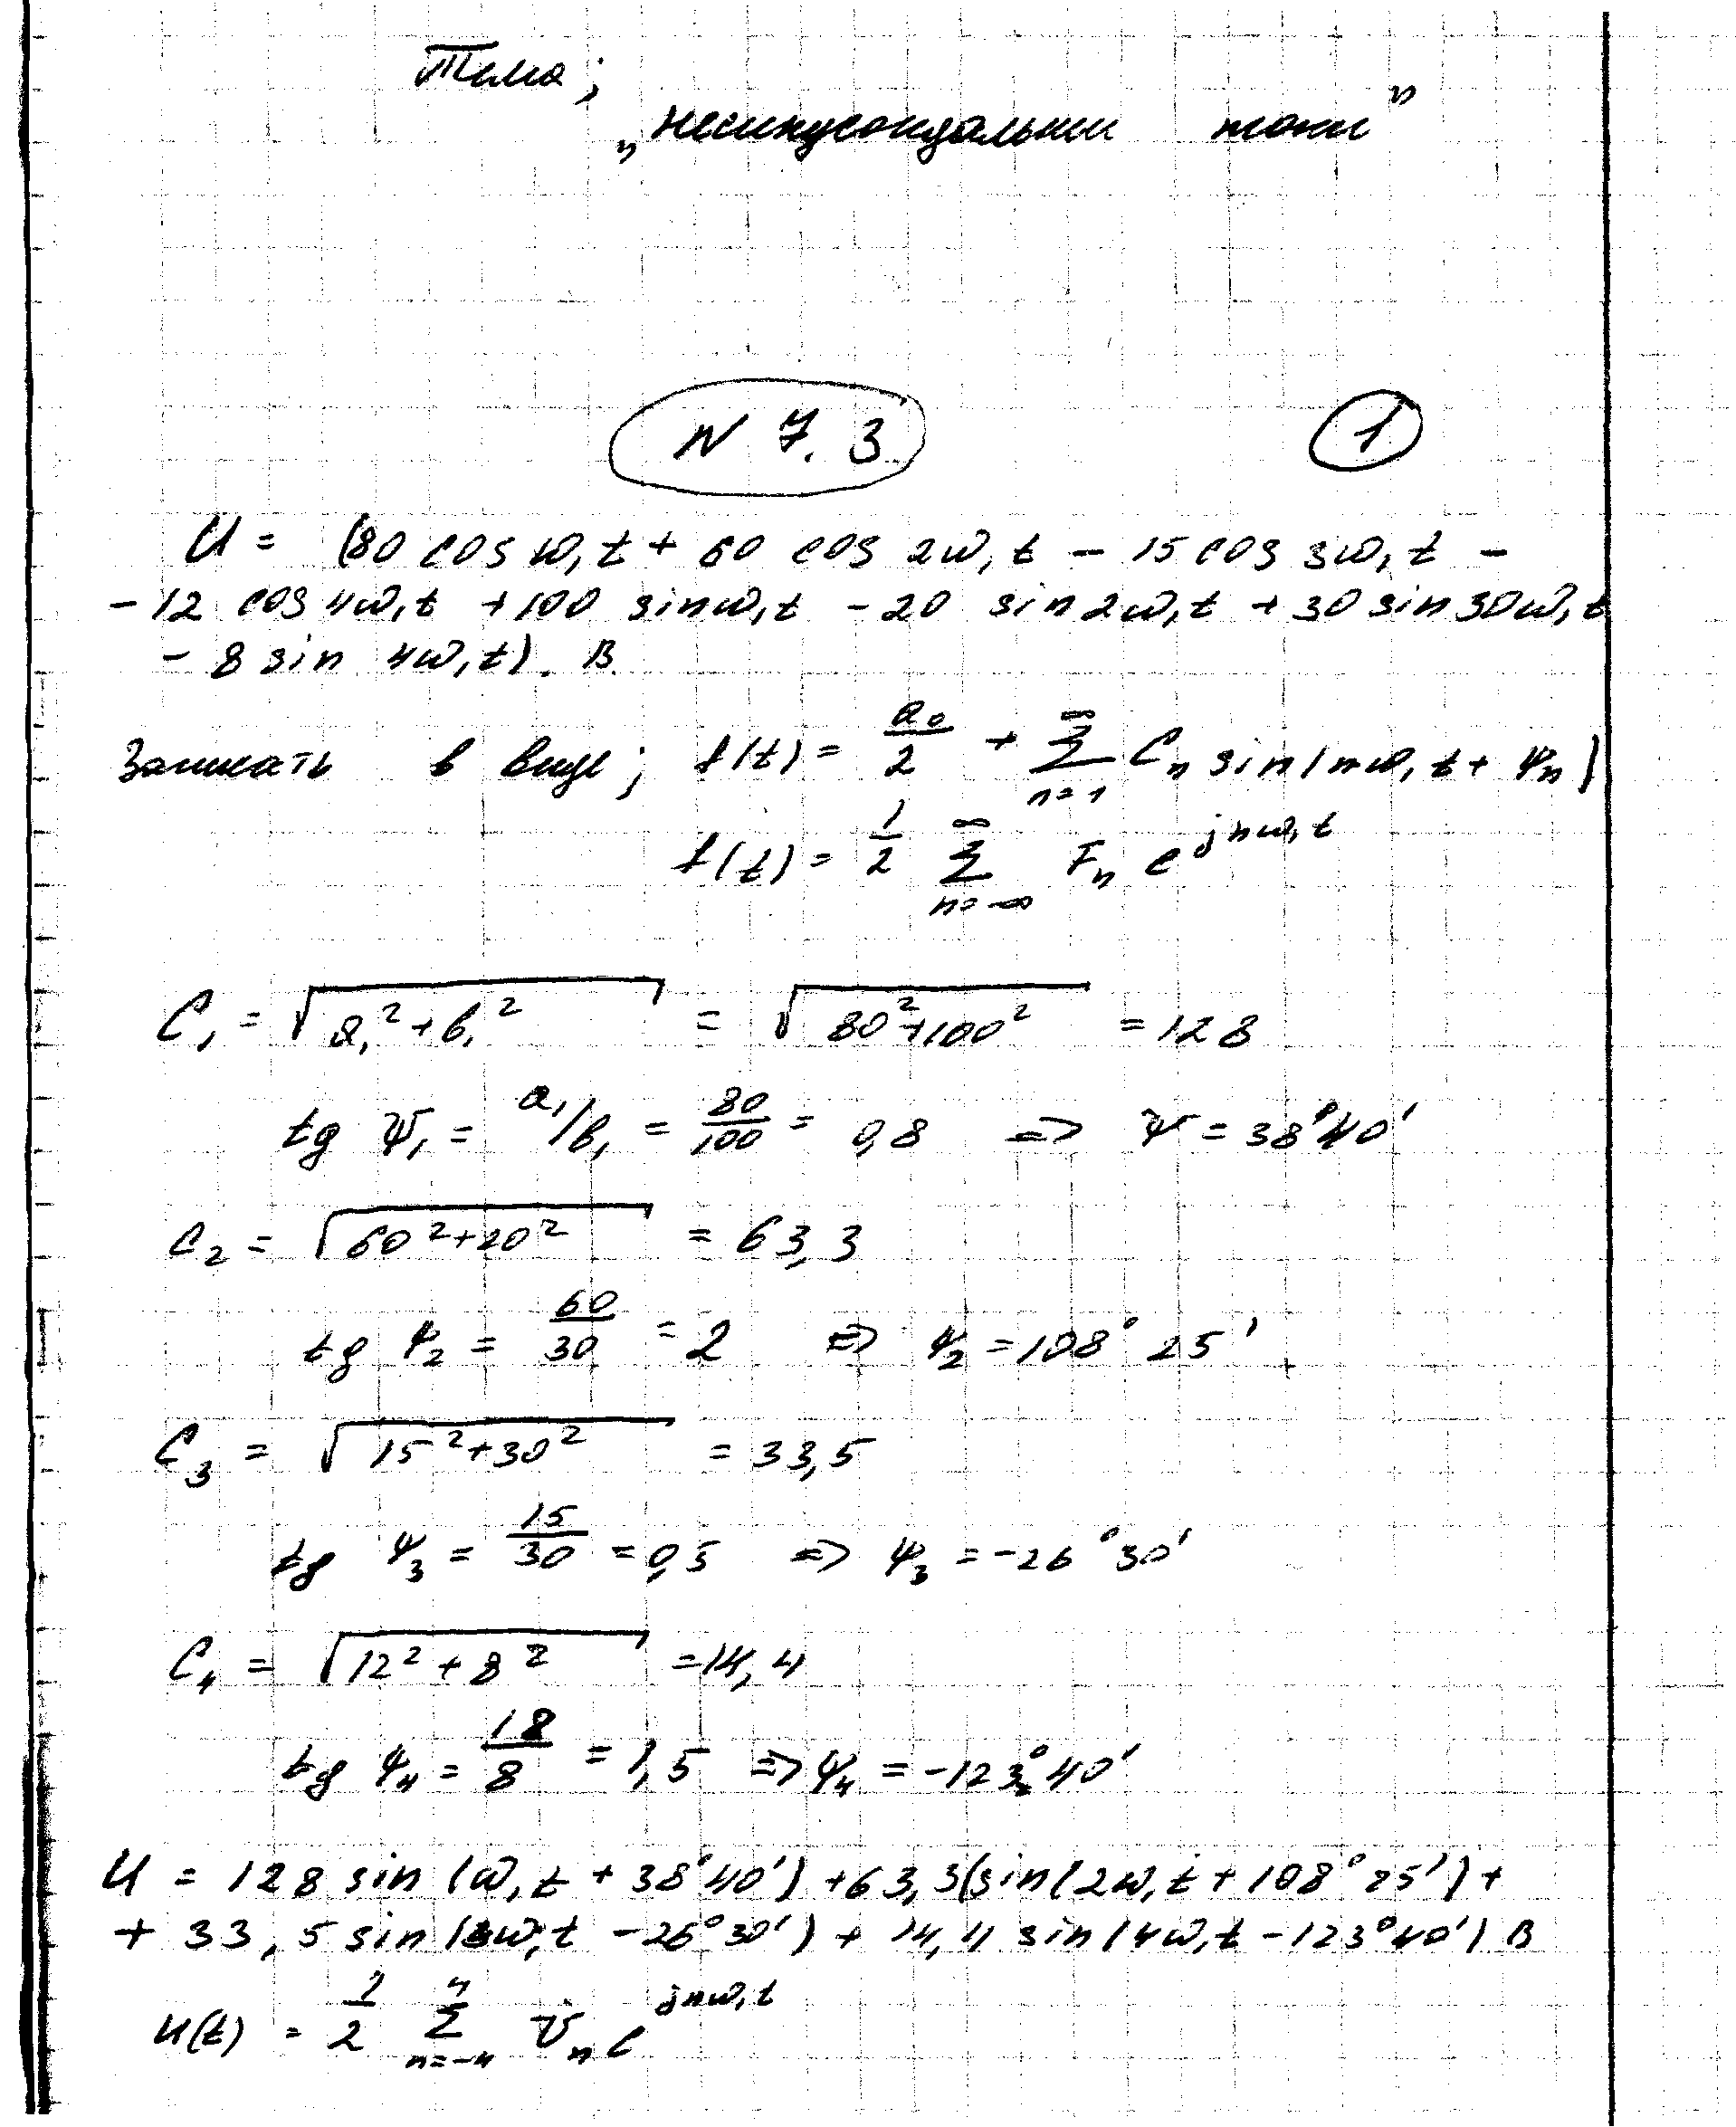 Тема;
„несинусоидальные токи”
N 7.3
1
U = (80 cos ω₁t + 60 cos 2ω₁t − 15 cos 3ω₁t −
− 12 cos 4ω₁t + 100 sin ω₁t − 20 sin 2ω₁t + 30 sin 30ω₁t
− 8 sin 4ω₁t). В.
Записать в виде; f(t) = a₀/2 + ∑ₙ₌₁^∞ Cₙ sin(nω₁t + ψₙ)
f(t) = 1/2 ∑ₙ₌₋∞^∞ Fₙ e^{jnω₁t}
C₁ = √(a₁² + b₁²) = √(80² + 100²) = 128
tg ψ₁ = a₁/b₁ = 80/100 = 0,8 => ψ = 38°40'
C₂ = √(60² + 20²) = 63,3
tg ψ₂ = 60/30 = 2 => ψ₂ = 108° 25'
C₃ = √(15² + 30²) = 33,5
tg ψ₃ = 15/30 = 0,5 => ψ₃ = −26°30'
C₄ = √(12² + 8²) = 14,4
tg ψ₄ = 18/8 = 1,5 => ψ₄ = −123°40'
U = 128 sin(ω₁t + 38°40') + 63,3(sin(2ω₁t + 108°25') +
+ 33,5 sin(3ω₁t − 26°30') + 14,4 sin(4ω₁t − 123°40') В
U(t) = 1/2 ∑ₙ₌₋₄^4 U̇ₙ e^{jnω₁t}